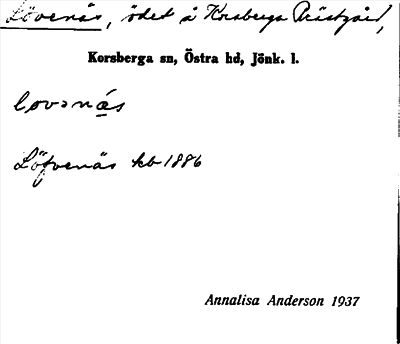 Lövenäs, ödet å Korsberga Prästgård,
Korsberga sn, Östra hd, Jönk. l.
lovənäs
Löfvenäs kb 1886
Annalisa Anderson 1937